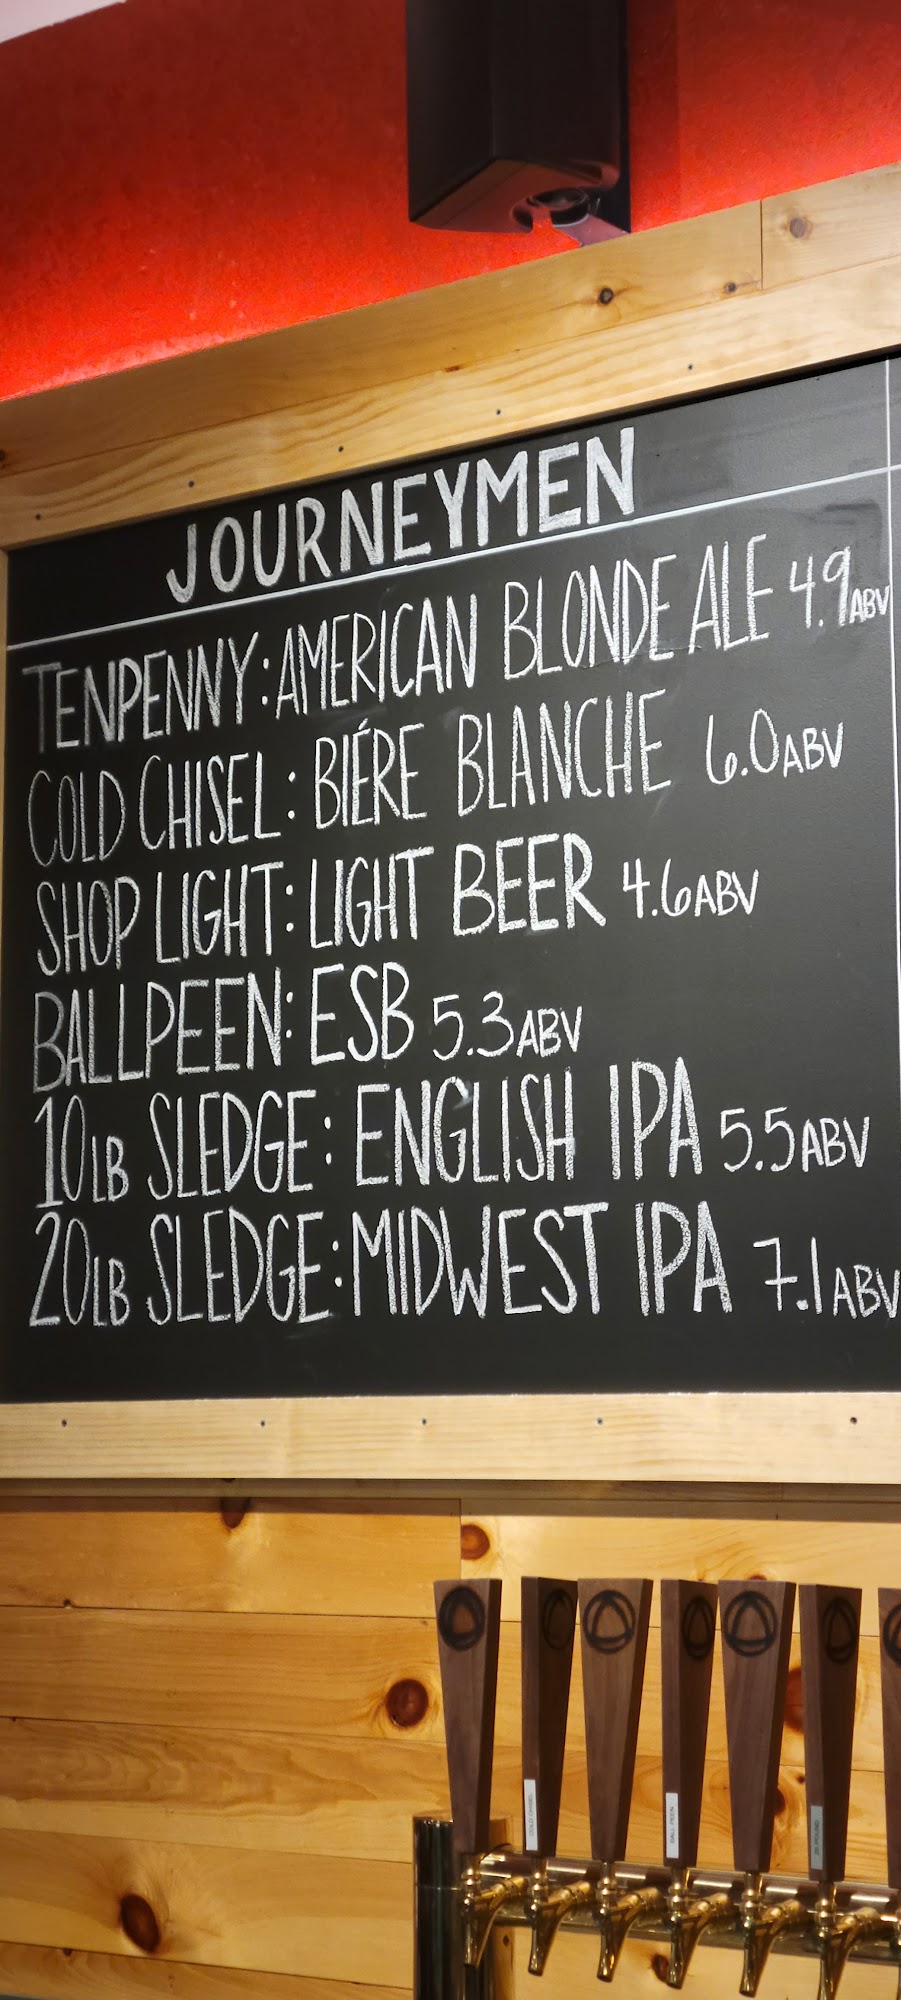 JOURNEYMEN
TENPENNY: AMERICAN BLONDE ALE 4.9 ABV
COLD CHISEL: BIÉRE BLANCHE 6.0 ABV
SHOP LIGHT: LIGHT BEER 4.6 ABV
BALLPEEN: ESB 5.3 ABV
10LB SLEDGE: ENGLISH IPA 5.5 ABV
20LB SLEDGE: MIDWEST IPA 7.1 ABV
COLD CHISEL
BALL PEEN